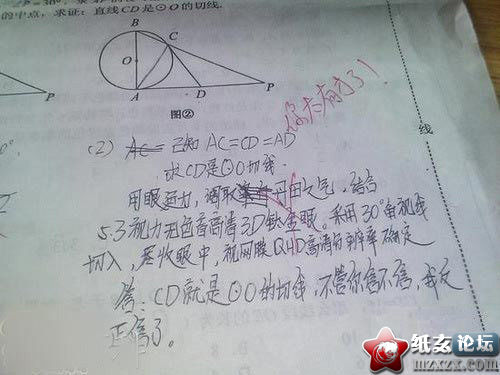 的中点,求证:直线CD是⊙O的切线.
B
C
O
A
D
P
P
图②
你太有才了!
(2) 已知 AC=CD=AD
求CD是⊙O切线.
用眼运力,调取丹田之气,结合
5.3视力无色盲高清3D钛金眼.采用30°角视线
切入,尽收眼中,视网膜QHD高清分辨率确定
答:CD就是⊙O的切线,不管你信不信,我反
正信了。
线
纸女论坛
mzxzx.com